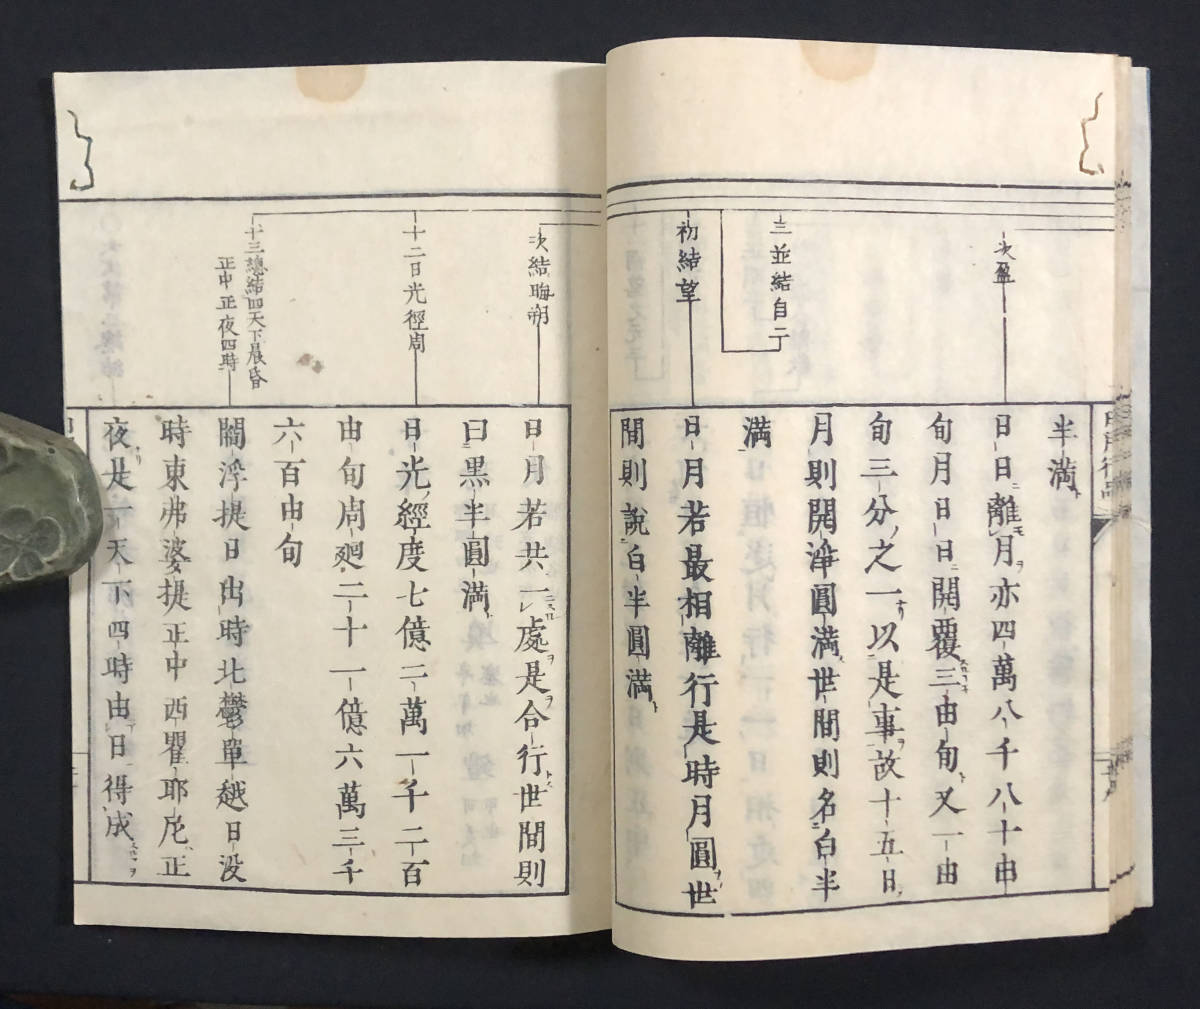 日月行品
半滿
次盈
日日離月亦四萬八千八十由
旬月日日開覆三由旬又一由
旬三分之一以是事故十五日
月則開淨圓滿世間則名白半
滿
三並結自二
初結望
日月若最相離行是時月圓世
間則說白半圓滿
次結晦朔
日月若共一處是合行世間則
曰黑半圓滿
十二日光徑周
日光經度七億二萬一千二百
由旬周廻二十一億六萬三千
六百由旬
十三總結四天下晨昏
正中正夜四時
閻浮提日出時北鬱單越日没
時東弗婆提正中西瞿耶尼正
夜是一天下四時由日得成